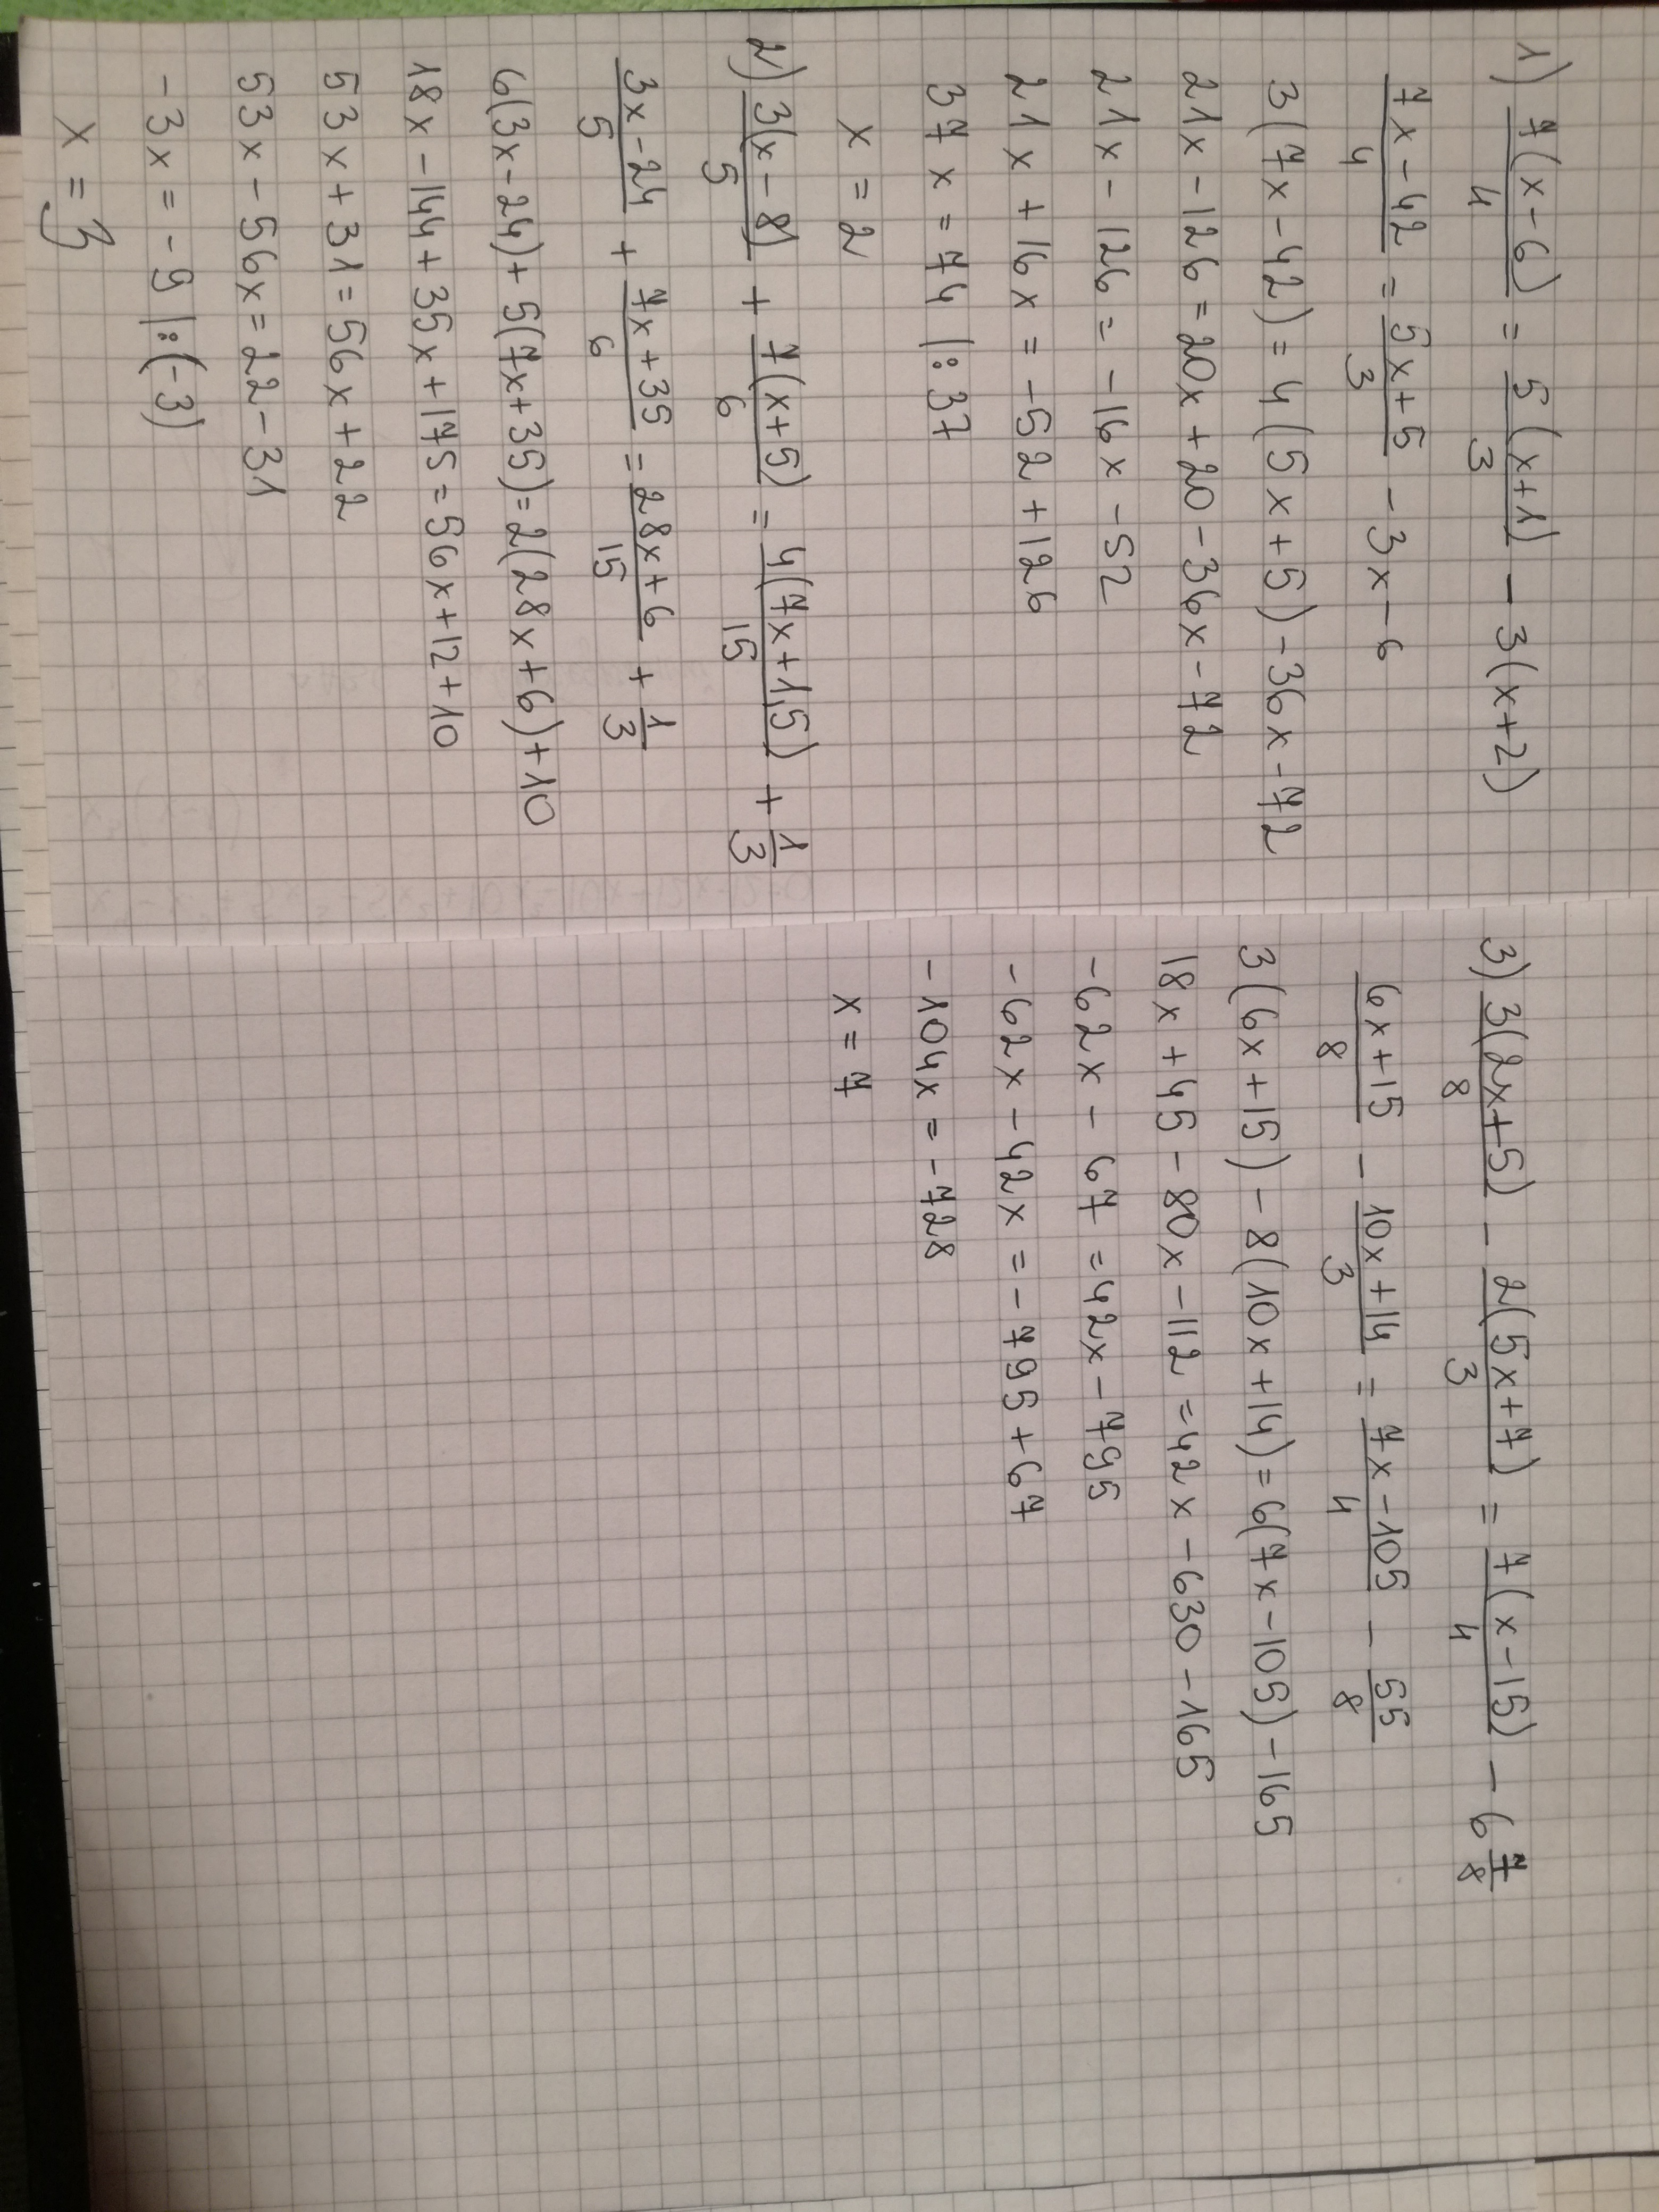 1) 7(x-6)/4 = 5(x+1)/3 - 3(x+2)
7x-42/4 = 5x+5/3 - 3x-6
3(7x-42) = 4(5x+5) - 36x-72
21x-126 = 20x+20-36x-72
21x-126 = -16x-52
21x+16x = -52+126
37x = 74 |:37
x = 2
2) 3(x-8)/5 + 7(x+5)/6 = 4(7x+1,5)/15 + 1/3
3x-24/5 + 7x+35/6 = 28x+6/15 + 1/3
6(3x-24)+5(7x+35)=2(28x+6)+10
18x-144+35x+175=56x+12+10
53x+31=56x+22
53x-56x=22-31
-3x=-9 |:(-3)
x=3
3) 3(2x+5)/8 - 2(5x+7)/3 = 7(x-15)/4 - 6 7/8
6x+15/8 - 10x+14/3 = 7x-105/4 - 55/8
3(6x+15)-8(10x+14)=6(7x-105)-165
18x+45-80x-112=42x-630-165
-62x-67=42x-795
-62x-42x=-795+67
-104x=-728
x=7